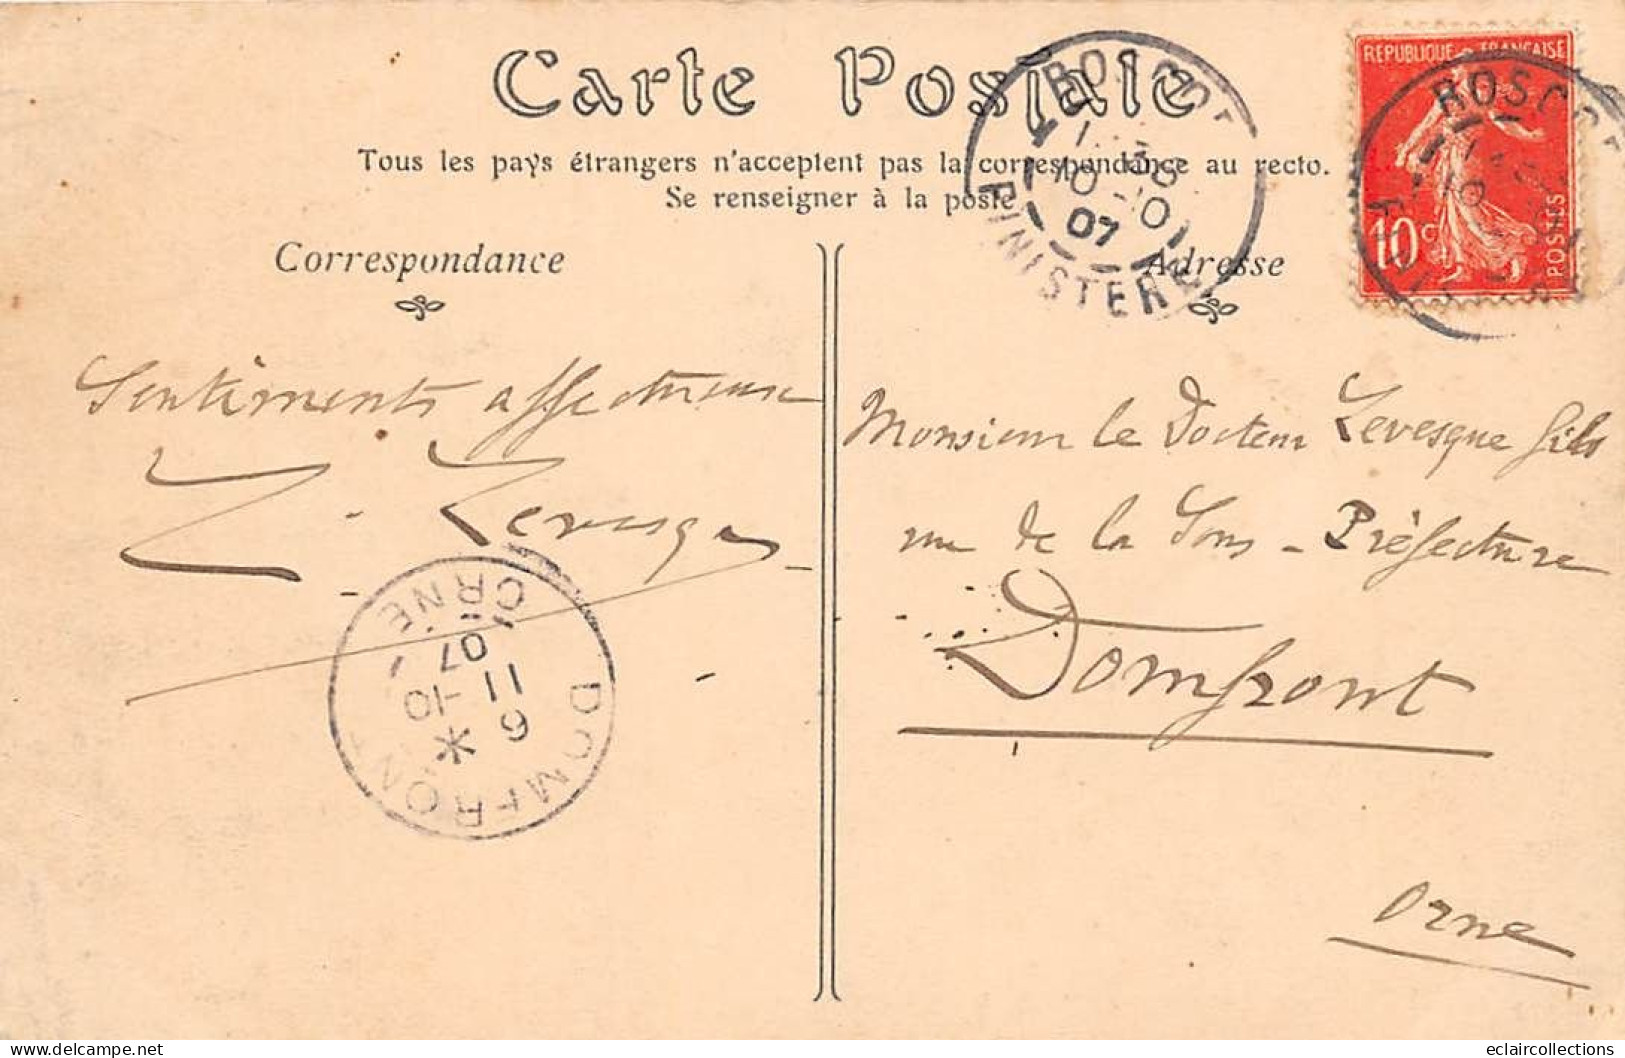 Carte Postale
Tous les pays étrangers n'acceptent pas la correspondance au recto.
Se renseigner à la poste
REPUBLIQUE FRANÇAISE
10c
POSTES
ROSCOFF
10 -10
07
FINISTERE
ROSCOFF
Correspondance
Adresse
Sentiments affectueux
Levesque
Monsieur le Docteur Levesque fils
rue de la Sous-Préfecture
Domfront
Orne
DOMFRONT
6
11 -10
07
ORNE
eclaircollections